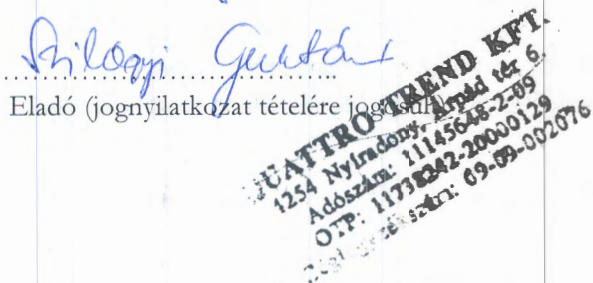 Szilágyi Gusztáv
Eladó (jognyilatkozat tételére jogosult)
QUATTRO-TREND KFT.
4254 Nyíradony, Árpád tér 6.
Adószám: 11145648-2-09
OTP: 11738242-20000129
09-09-002076